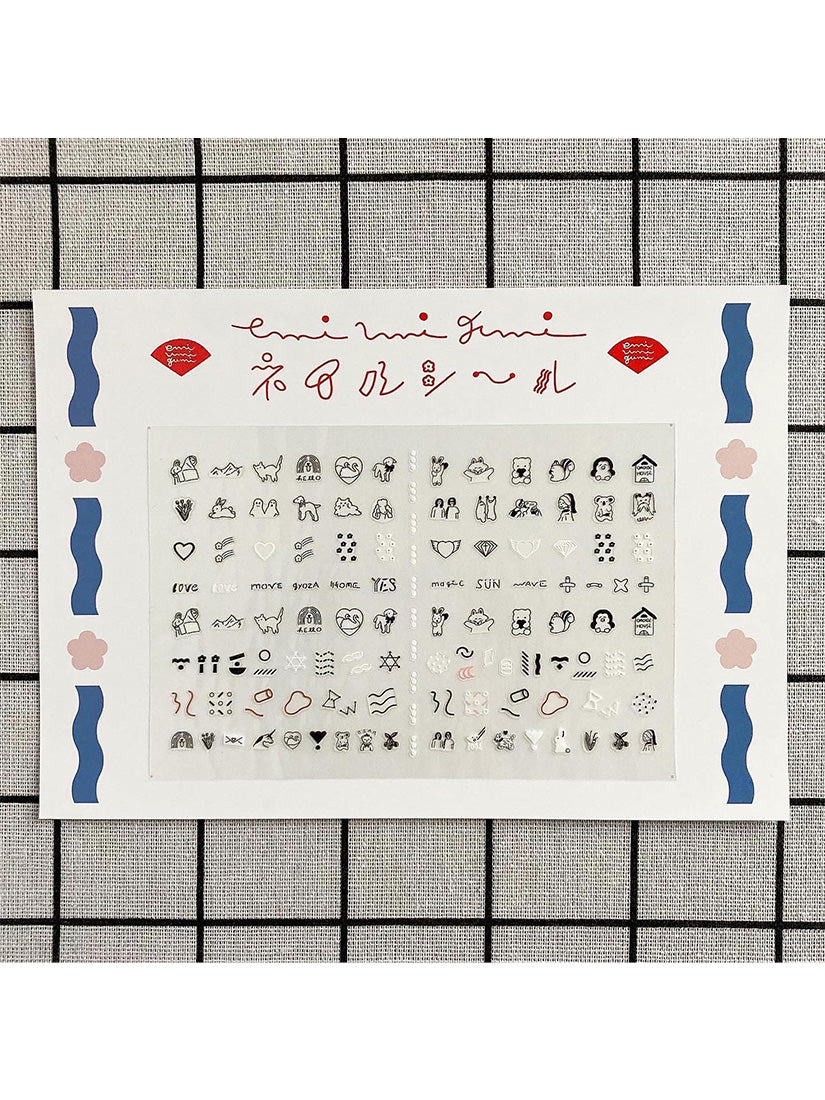 emi umi gumi
emi
umi
gumi
emi
umi
gumi
ネイルシール
HELLO
OMOIDE
HOUSE
love love move gyoza HOME YES magic SUN WAVE
HELLO
OMOIDE
HOUSE